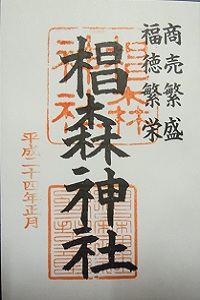 商売繁盛
福徳繁栄
椙森神社
平成二十四年正月